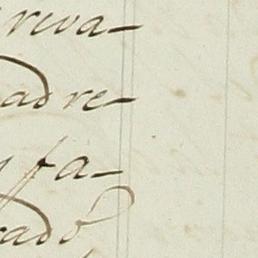 riva-
ad re-
y fa-
rado